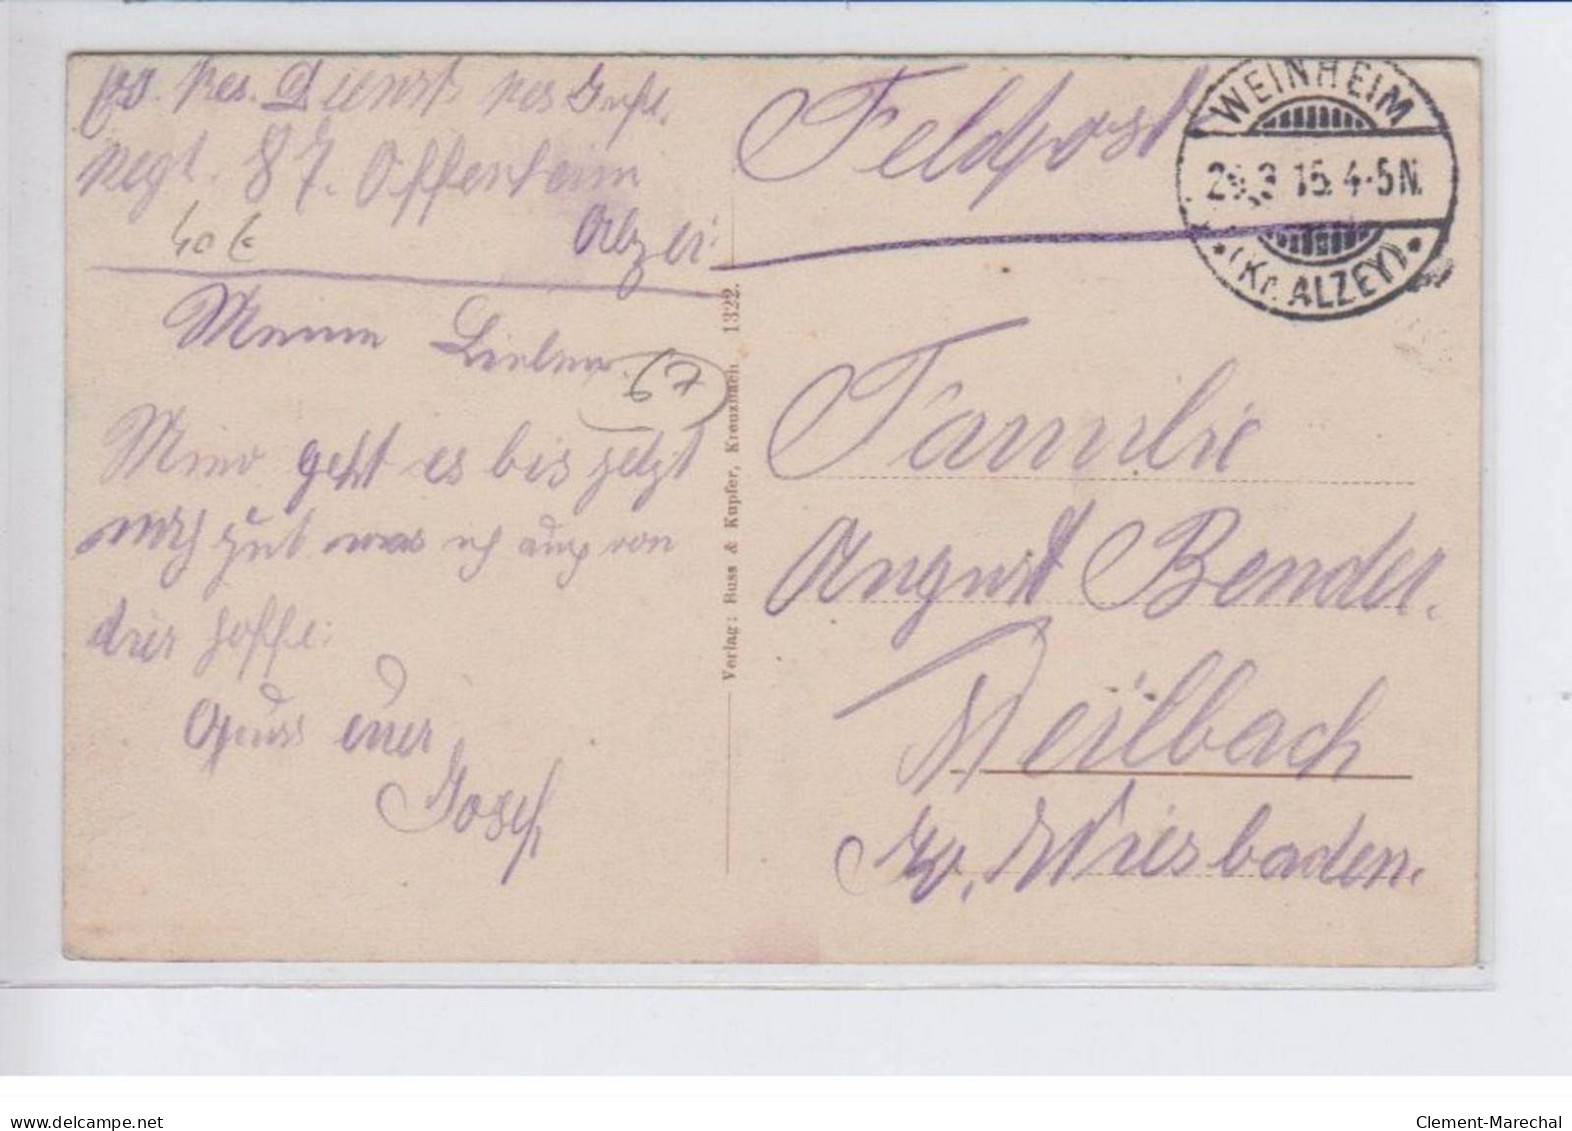 Res. Dienst Res Inft.
Regt. 87. Offenheim
Alzei.
40 €
Meine Lieben
67
Mir geht es bis jetzt
noch gut was ich auch von
hoffe.
Gruss euer
Josef
Verlag: Buss & Kupfer, Kreuznach 1322.
Feldpost
WEINHEIM
15. 4-5 N.
* (Kr. ALZEY) *
Familie
August Bender.
Weilbach
Wiesbaden.
delcampe.net
Clement-Marechal